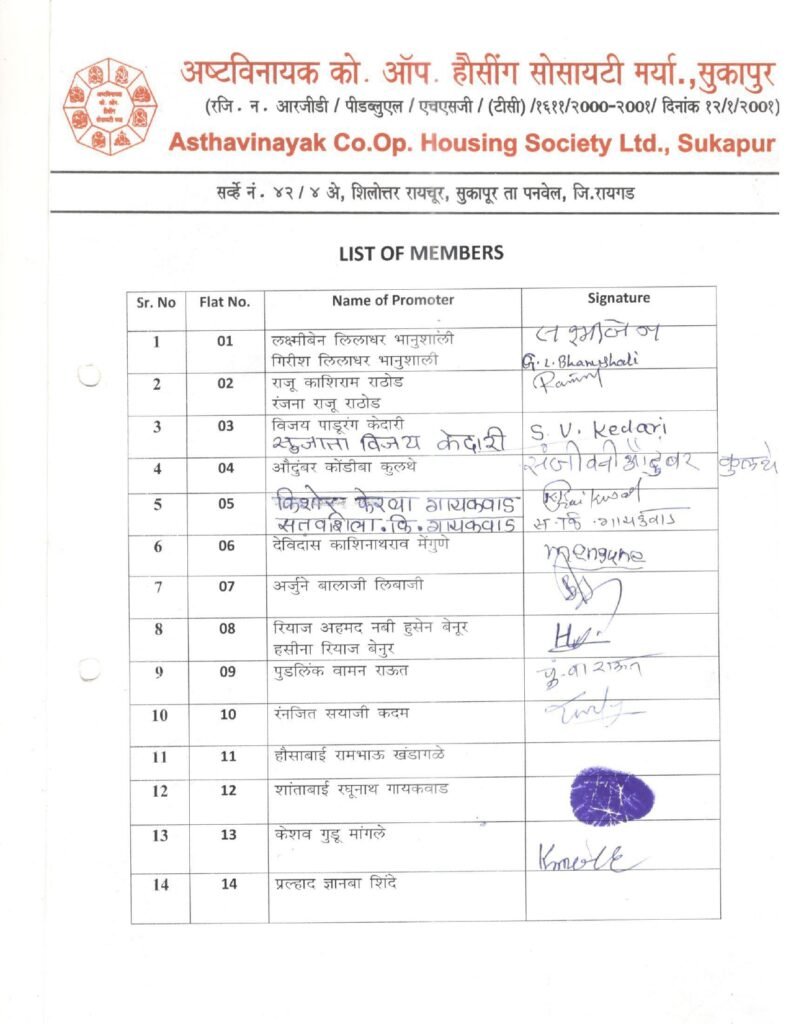 अष्टविनायक को. ऑप. हौसींग सोसायटी मर्या.,सुकापुर
(रजि. न. आरजीडी / पीडब्लुएल / एचएसजी / (टीसी) /१६११/२000-२00१/ दिनांक १२/१/२00१)
Asthavinayak Co.Op. Housing Society Ltd., Sukapur
अष्टविनायक
को. ऑप.
हौसींग
सोसायटी मर्या
सर्व्हे नं. ४२/४ अे, शिलोत्तर रायचूर, सुकापूर ता पनवेल, जि.रायगड
LIST OF MEMBERS
Sr. No Flat No. Name of Promoter Signature
1 01 लक्ष्मीबेन लिलाधर भानुशाली
गिरीश लिलाधर भानुशाली G. L. Bhanushali
2 02 राजू काशिराम राठोड
रंजना राजू राठोड
3 03 विजय पाडूरंग केदारी S. V. Kedari
सुजाता विजय केदारी
4 04 औदुंबर कोंडीबा कुलथे संजीवनी औदुंबर कुलथे
5 05 किशोर फेरया गायकवाड
सतवशिला. कि. गायकवाड स. कि. गायकवाड
6 06 देविदास काशिनाथराव मेंगुणे mengune
7 07 अर्जुने बालाजी लिबाजी
8 08 रियाज अहमद नबी हुसेन बेनूर
हसीना रियाज बेनुर
9 09 पुडलिंक वामन राऊत पुं. वा राऊत
10 10 रंनजित सयाजी कदम
11 11 हौसाबाई रामभाऊ खंडागळे
12 12 शांताबाई रघूनाथ गायकवाड
13 13 केशव गुडू मांगले
14 14 प्रल्हाद ज्ञानबा शिंदे